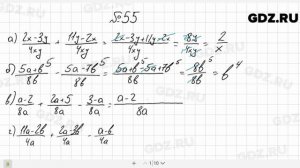 GDZ.RU
№55
а) (2x-3y)/4xy + (11y-2x)/4xy = (2x-3y+11y-2x)/4xy = 8y/4xy = 2/x
б) (5a+b⁵)/8b - (5a-7b⁵)/8b = (5a+b⁵-5a+7b⁵)/8b = 8b⁵/8b = b⁴
в) (a-2)/8a + (2a+5)/8a - (3-a)/8a = (a-2)/8a
г) (11a-2b)/4a + (2a-3b)/4a - (a-b)/4a
GDZ.RU